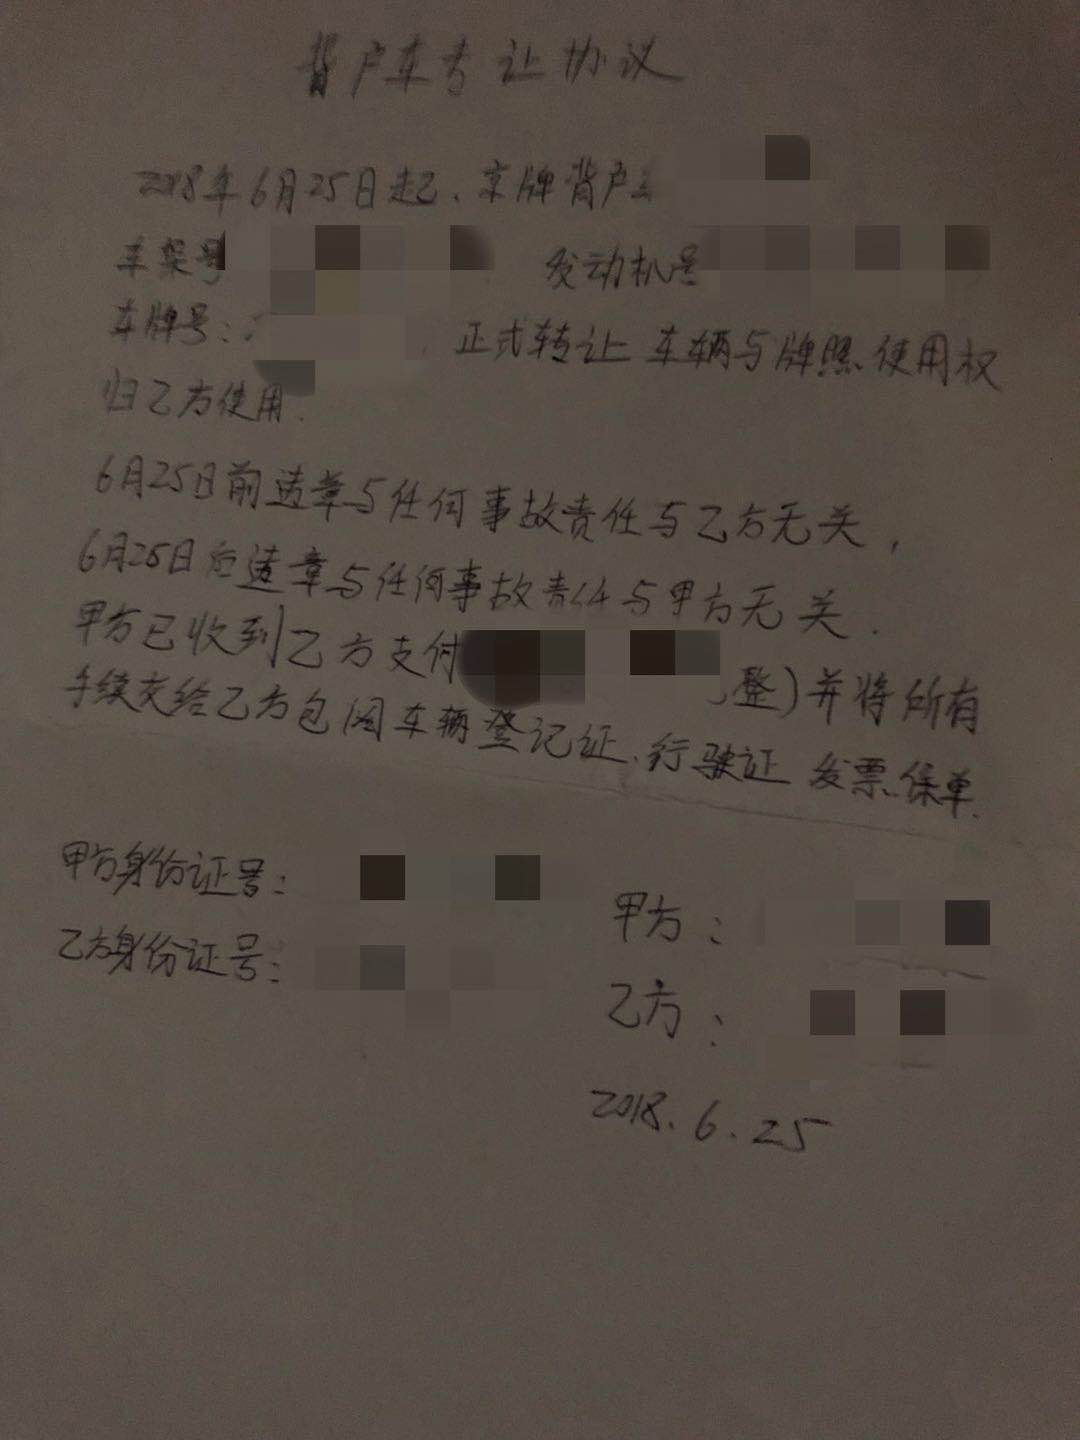 背户车专让协议
2018年6月25日起、京牌背户
车架号 发动机号
车牌号: 正式转让车辆与牌照使用权
归乙方使用.
6月25日前违章与任何事故责任与乙方无关,
6月25日后违章与任何事故责任与甲方无关.
甲方已收到乙方支付 整)并将所有
手续交给乙方包阔车辆登记证、行驶证 发票、保单.
甲方身份证号:
乙方身份证号:
甲方:
乙方:
2018.6.25